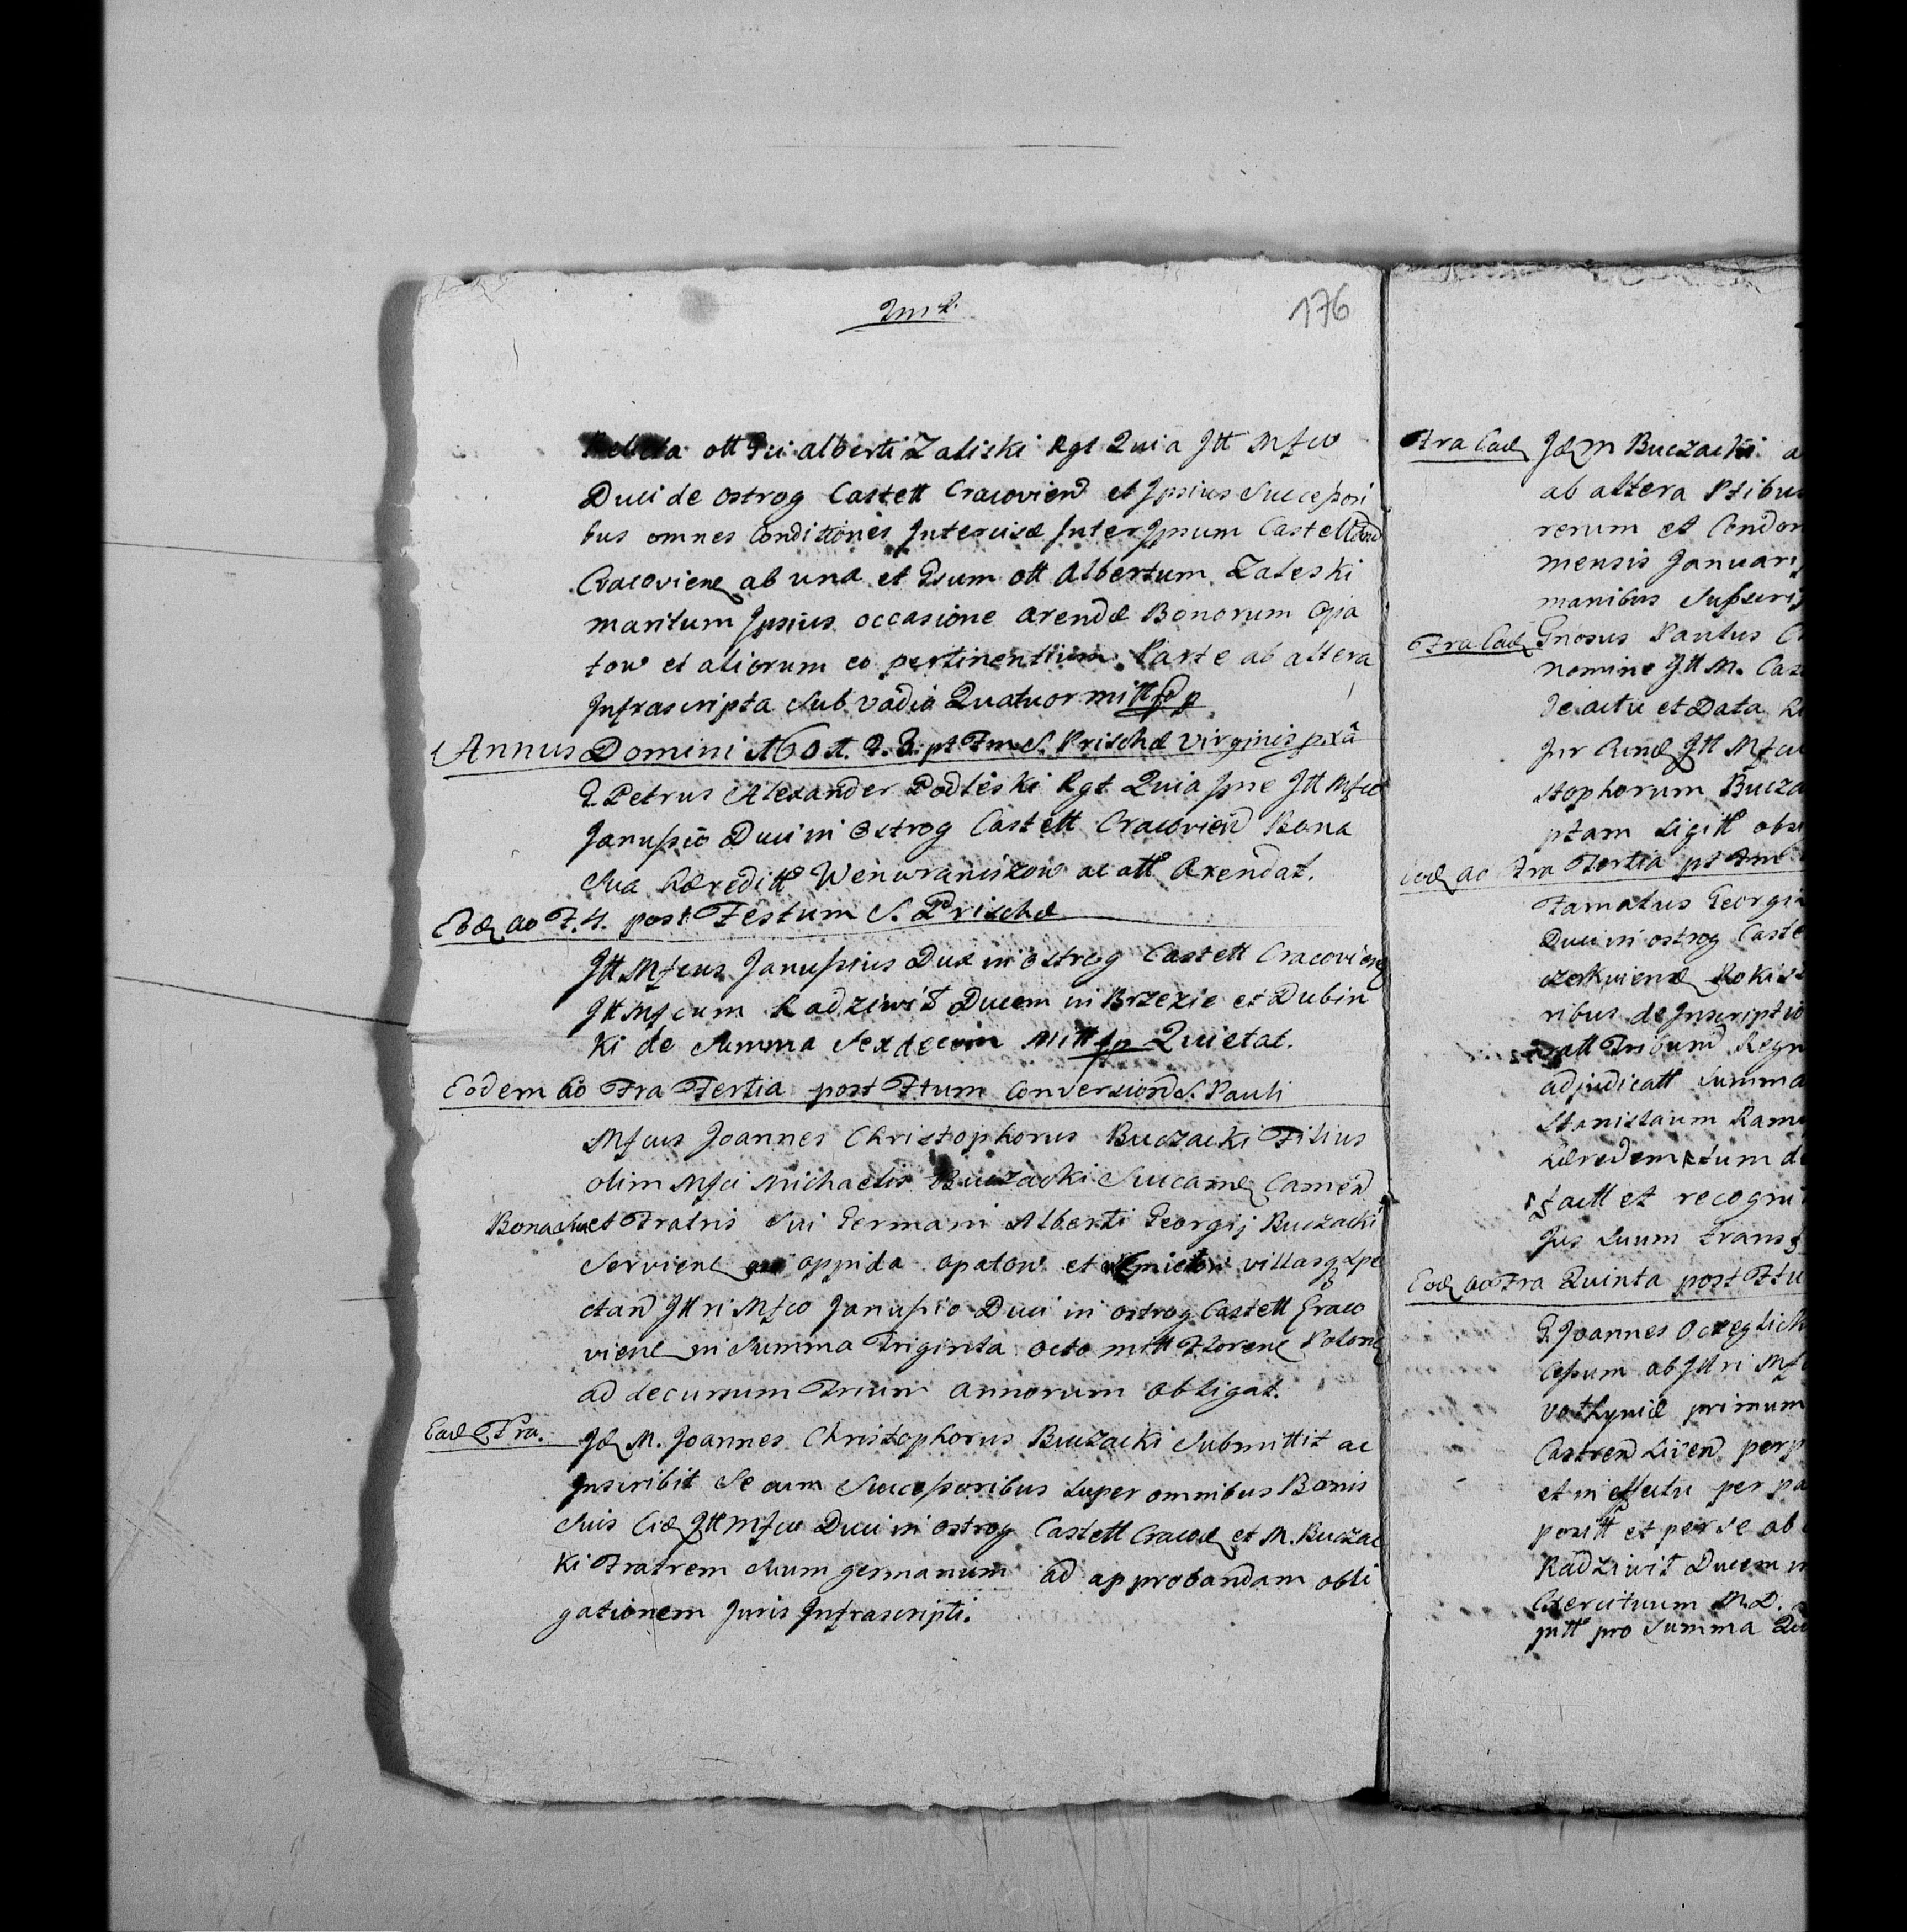 176
Relicta ott Gsi Alberti Zaliski Rgt Quia Jtt Mfco
Duci de Ostrog Castell Cracovien et Jpsius Successori
bus omnes Conditiones Jntercisæ Jnter Jpsum Castellan
Cracovien ab una et Gsum ott Albertum Zaleski
maritum Jpsius occasione Arendæ Bonorum Opa
tow et aliorum eo pertinentium Parte ab altera
Jnfrascripta sub vadio Quatuor mill
Annus Domini 1601. pt Ftm S. Priscæ Virginis pxa
G Petrus Alexander Podleski Rgt Quia Jpse Jtt Mfco
Janussio Duci in Ostrog Castell Cracovien Bona
sua hæredit Arendat.
Eod ao F. 4. post Festum S. Prischæ
Jtt Mfcus Janussius Dux in Ostrog Castell Cracovien
Jtt Mfcum Radziwił Ducem in Brzezie et Dubin
ki de Summa Sexdecim Mill fp Quietat.
Eodem ao Fra Tertia post Ftum Conversion S. Pauli
Mfcus Joannes Christophorus Buczacki Filius
olim Mfci Michaelis Buczacki Succam Camen
Bona sua et Fratris Sui Germani Alberti Georgij Buczacki
Servien oppida Opatow et villasq spe
ctan Jttri Mfco Janussio Duci in Ostrog Castell Craco
vien in Summa Triginta Octo mill Floren Polon
ad decursum Trium Annorum Obligat.
Ead Fra. Jd M. Joannes Christophorus Buczacki Submittit ac
Jnscribit Se cum Successoribus super omnibus Bonis
Suis Jtt Mfco Duci in Ostrog Castell Cracov et M. Buczac
ki Fratrem Suum germanum ad approbandam obli
gationem Juris Jnfrascripti.
Fra Ead Jdem Buczacki a
ab altera Ptibus
rerum et Condon
mensis Januarij
manibus Subscrip
Fra Ead Gnosus Paulus
Nomine Jtt M. Cas
de actu et Data
Jtt Mfcu
stophorum Bucza
ptam Sigill
Eod ao Fra Tertia pt Ftm
Famatus Georgi
Duci in Ostrog Caste
ribus de Jnscriptio
Regn
adjudicatt Summa
Stanislaum
et recogni
Jus Suum Transf
Eod ao Fra Quinta post Ftu
G. Joannes
ab Jttri Mf
Volhyniæ primum
Castren
et in effectu per pa
posit et per se ab
Radziwił Ducem in
Exercituum M.D.
pro Summa